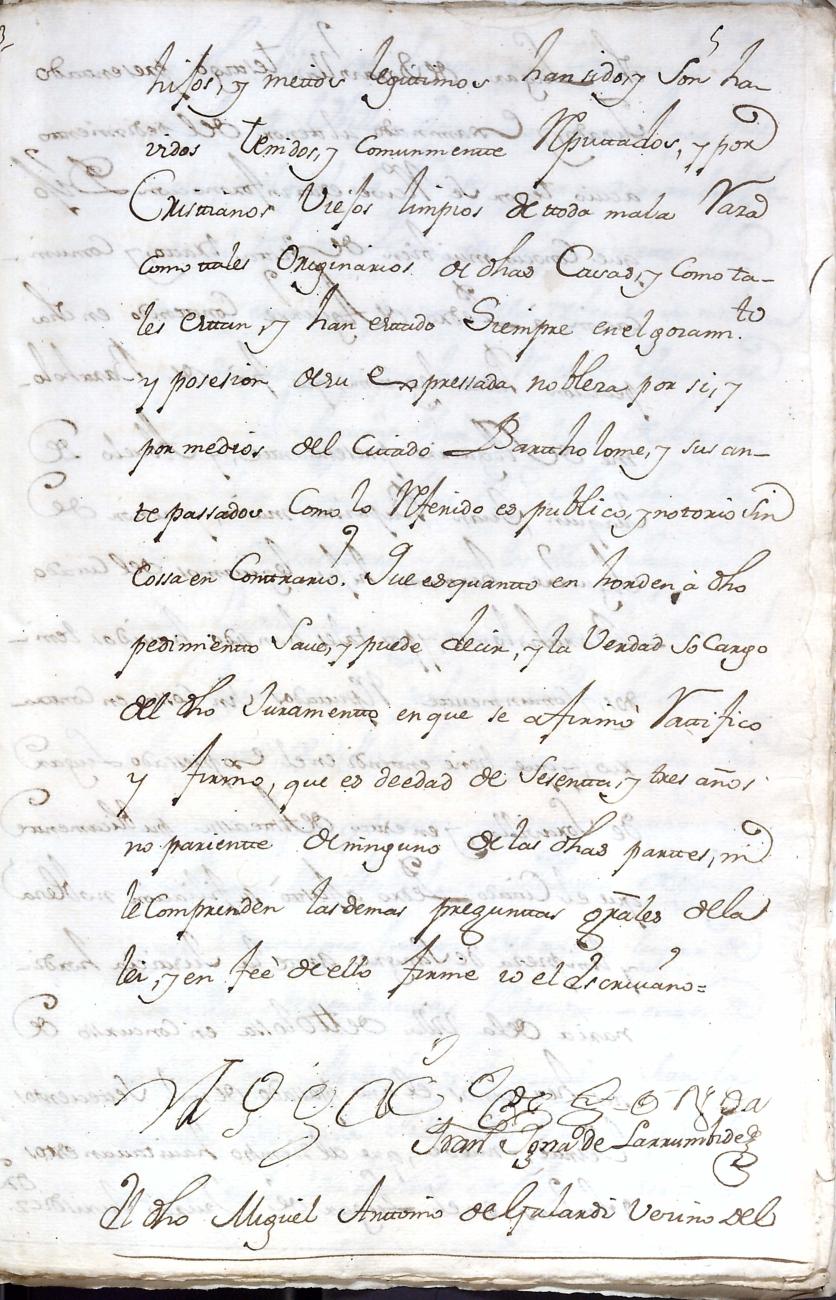 5
hijos, y nietos legitimos han sido, y son ha-
vidos tenidos, y comunmentte Reputtados, y por
Cristtianos Viejos limpios de ttoda mala Raza
como ttales Originarios de dhas Casas, y como ta-
les esttan, y han esttado Siempre en el gozam.to
y posesion de su expressada nobleza por si, y
por medios del Cittado Barttholome, y sus an-
tepassados Como lo Referido es publico, y notorio sin
Cossa en Conttrario. Que es quantto en horden à dho
pedimientto Save, y puede decir, y la Verdad so Cargo
del dho Juramentto en que se afirmò Rattifico
y firmò, que es de edad de Sesentta, y tres años
no parientte de ninguno de las dhas parttes, ni
le Comprenden las demas pregunttas grãles de la
lei, y en feè de ello firme io el Escrivano=
Fran.co Ign.o de Larrumbide
El dho Miguel Anttonio de Galardi Vecino del